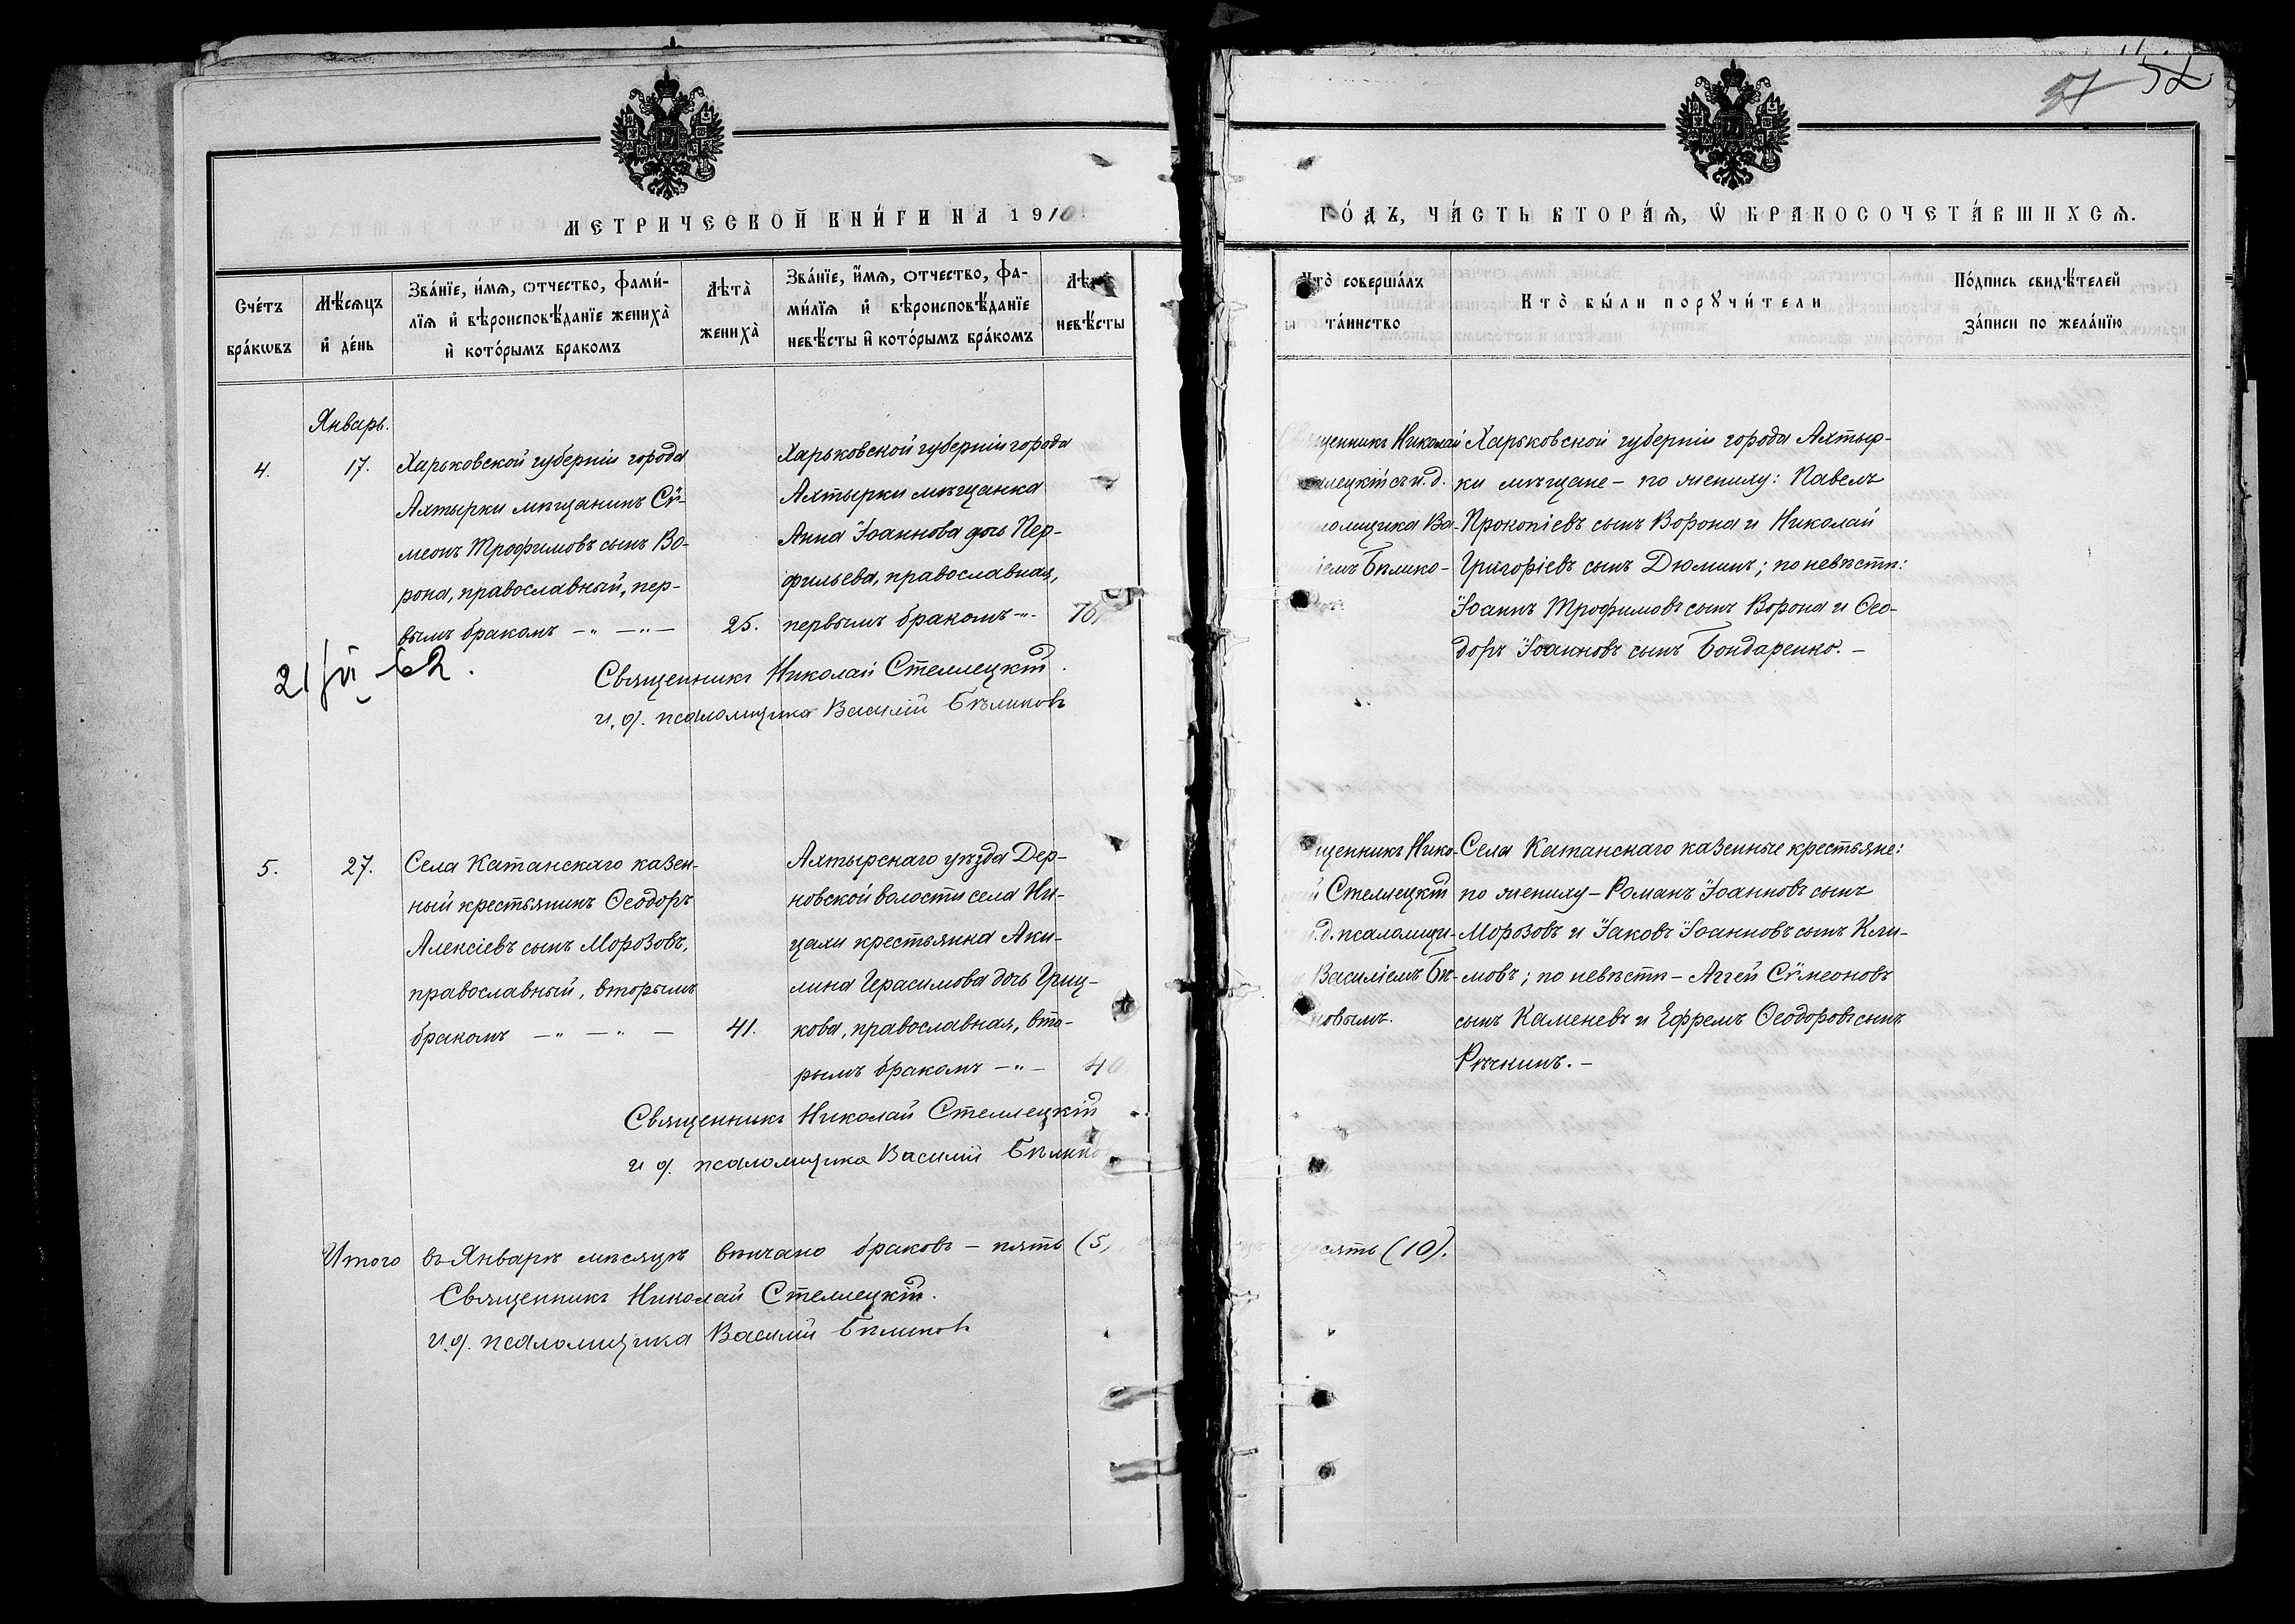 52
27
МЕТРИЧЕСКОЙ КНИ́ГИ НА 1910
ГО́ДЪ, ЧА́СТЬ ВТОРА́Ѧ, Ѡ҆ БРАКОСОЧЕТА́ВШИХСѦ.
Сче́тъ бра́кѡвъ
Мѣ́сѧцъ и҆ де́нь
Зва́нїе, и҆́мѧ, ѻ҆тчество, фами́-
лїѧ и҆ вѣроисповѣ́данїе жениха̀
и҆ кото́рымъ бракомъ
Лѣта̀ жениха̀
Зва́нїе, и҆́мѧ, ѻ҆тчество, фа-
ми́лїѧ и҆ вѣроисповѣ́данїе
невѣ́сты и҆ кото́рымъ бра́комъ
невѣ́сты
Кто̀ соверша́лъ
та́инство
Кто̀ бы́ли порꙋчи́тели
По́дпись свидѣ́телей
за́писи по жела́нїю
Январь.
4.
17.
Харьковской губерніи города
Ахтырки мѣщанинъ Сѵ-
меонъ Трофимовъ сынъ Во-
рона, православный, пер-
вымъ бракомъ — " — " —
25.
Харьковской губерніи города
Ахтырки мѣщанка
Анна Іоаннова дочь Пер-
фильева, православная,
первымъ бракомъ - " -
Священникъ Николай Стеллецкій.
и. д. псаломщика Василій Бѣликовъ
21/VI 62.
Николай
и. д.
псаломщика Ва-
Бѣлико-
Харьковской губерніи города Ахтыр-
ки мѣщане - по жениху: Павелъ
Прокопіевъ сынъ Ворона и Николай
Григоріевъ сынъ Дюминъ; по невѣстѣ:
Іоаннъ Трофимовъ сынъ Ворона и Ѳео-
доръ Іоанновъ сынъ Бондаренко. -
5.
27.
Села Катанскаго казен-
ный крестьянинъ Ѳеодоръ
Алексіевъ сынъ Морозовъ,
православный, вторымъ
бракомъ — " — " —
41.
Ахтырскаго уѣзда Дер-
новской волости села Ни-
цахи крестьянка Аки-
лина Герасимова дочь Гриц-
кова, православная, вто-
рымъ бракомъ — " —
40.
Священникъ Николай Стеллецкій
и д. псаломщика Василій
Нико-
Стеллецкій
псаломщи-
Василіемъ Бѣ-
Села Катанскаго казенные крестьяне:
по жениху - Романъ Іоанновъ сынъ
Морозовъ и Іаковъ Іоанновъ сынъ Кли-
мовъ; по невѣстѣ - Аггей Сѵмеоновъ
сынъ Каменевъ и Ефремъ Ѳеодоровъ сынъ
Рѣчкинъ. -
Итого въ Январѣ мѣсяцѣ вѣнчано браковъ - пять (5)
(10).
Священникъ Николай Стеллецкій.
и. д. псаломщика Василій Бѣликовъ